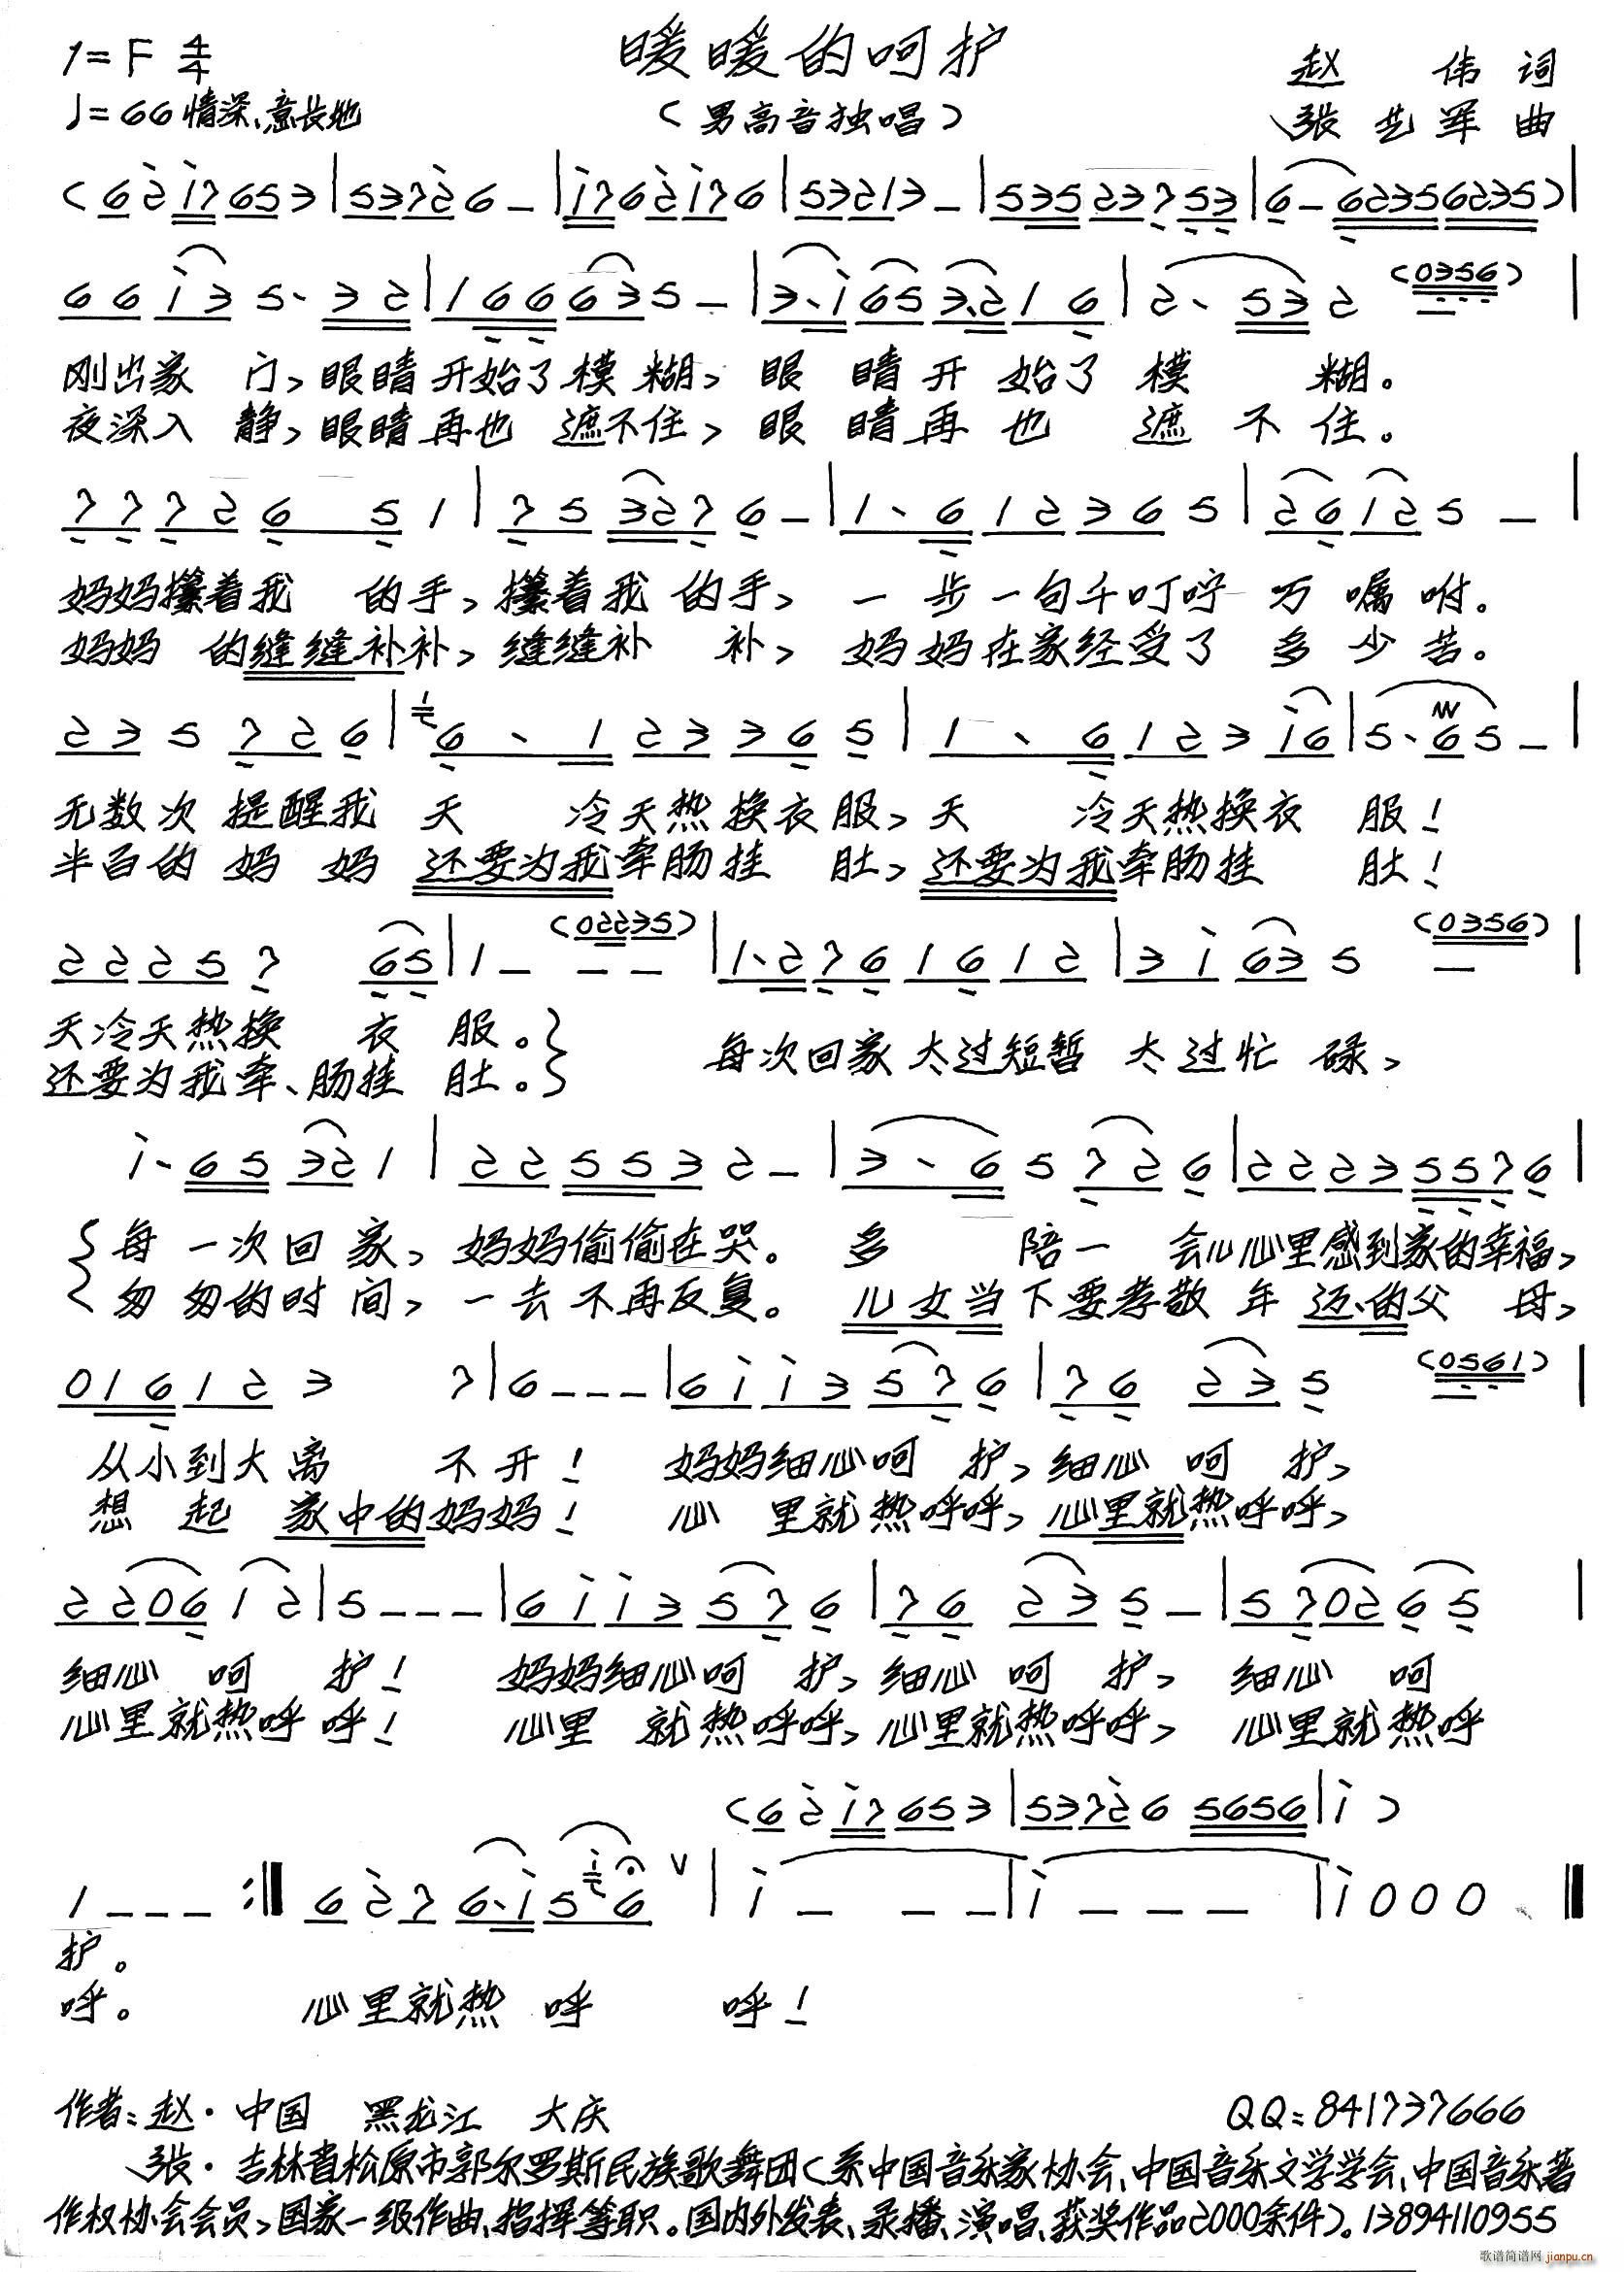 暖暖的呵护
1=F 4/4
♩=66 情深、意长地
（男高音独唱）
赵 伟 词
张艺军 曲
(6 2̇ i7 653|537 2̇ 6 -|i76 2̇ i76|53213 -|53523753|6 - 62356235)|
66i35·32|166635 -|3·i653·216|2·532 (0356)|
刚出家 门，眼睛开始了模糊，眼 睛开 始了 模 糊。
夜深入 静，眼睛再也 遮不住，眼 睛再 也 遮 不 住。
777265 1|753276 -|1·612365|26125 -|
妈妈攥着我 的手，攥着我 的手， 一 步一句千叮咛 万 嘱 咐。
妈妈 的缝缝补补，缝缝补 补， 妈妈在家经受了 多 少 苦。
235726|6·123365|1·6123i6|5·65 -|
无数次 提醒我 天 冷天热换衣服，天 冷天热换衣 服！
半百的 妈 妈 还要为我牵肠挂 肚，还要为我牵肠挂 肚！
22257 65|1 - - - (02235)|1·2761612|3i635 - (0356)|
天冷天热换 衣 服。
还要为我牵、肠挂 肚。
每次回家太过短暂 太过忙 碌，
i·65321|225532 -|3·65726|22235576|
每 一次回 家，妈妈偷偷在哭。 多 陪一 会儿心里感到家的幸福，
匆 匆的时 间，一去不再反复。 儿女当下要孝敬 年 迈的父 母，
016123 7|6 - - -|6ii3576|76 235 - (0561)|
从小到大离 不开！ 妈妈细心呵 护，细心 呵 护，
想 起 家中的妈妈！ 心 里就热呼呼，心里就热呼呼，
220612|5 - - -|6ii3576|76 235 -|570265|
细心 呵 护！ 妈妈细心呵 护，细心 呵 护， 细心 呵
心里就热呼呼！ 心里 就热呼呼，心里就热呼呼， 心里就热呼
(6 2̇ i7 653|537 2̇ 6 5656|i)
1 - - - :‖ 6 2̇ 7 6·i 5 6 ∨|i - - -|i - - -|i 0 0 0‖
护。
呼。 心里就热 呼 呼！
作者：赵·中国 黑龙江 大庆
QQ：841737666
张·吉林省松原市郭尔罗斯民族歌舞团（系中国音乐家协会、中国音乐文学学会、中国音乐著
作权协会会员，国家一级作曲、指挥等职。国内外发表、录播、演唱、获奖作品2000余件）。13894110955
歌谱简谱网 jianpu.cn